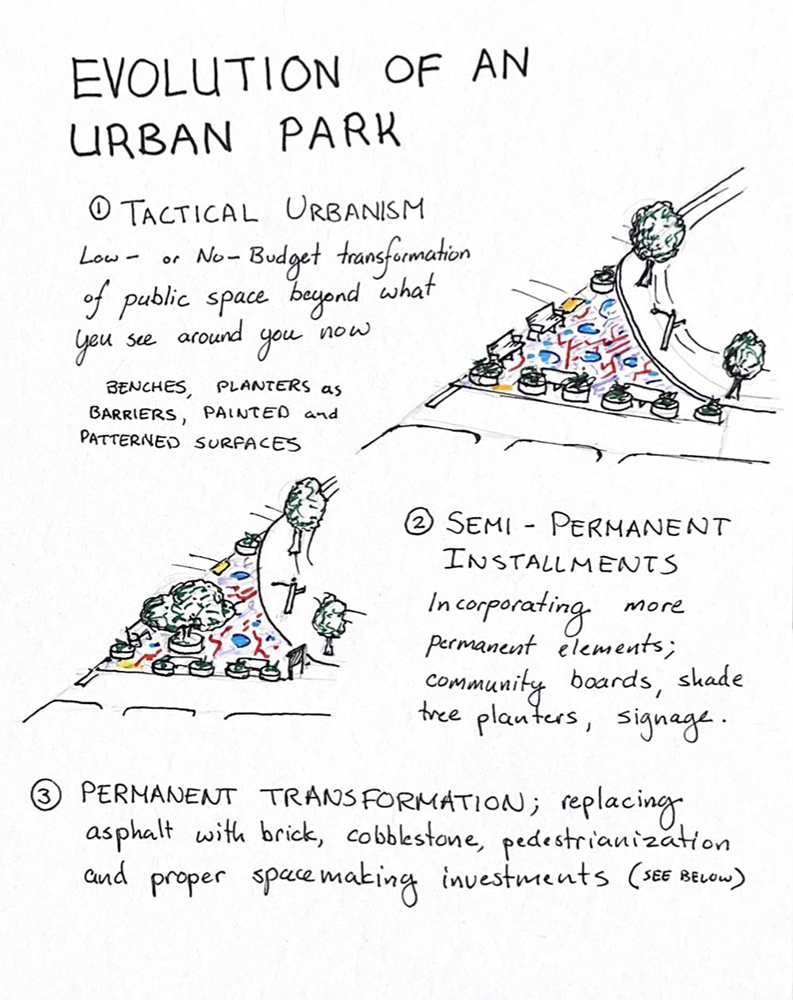 EVOLUTION OF AN
URBAN PARK
① TACTICAL URBANISM
Low- or No-Budget transformation
of public space beyond what
you see around you now
BENCHES, PLANTERS as
BARRIERS, PAINTED and
PATTERNED SURFACES
② SEMI-PERMANENT
INSTALLMENTS
Incorporating more
permanent elements;
community boards, shade
tree planters, signage.
③ PERMANENT TRANSFORMATION; replacing
asphalt with brick, cobblestone, pedestrianization
and proper spacemaking investments (SEE BELOW)